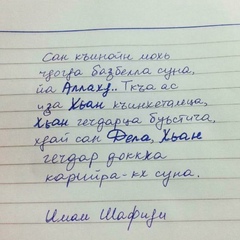 Сан къинойн мохь
чӀогӀа базбелла суна,
йа АллахӀ.. Ткъа ас
иза Хьан къинхетамца,
Хьан гечдарца буьстича,
хӀай сан Дела, Хьан
гечдар доккха
карийра-кх суна.
Имам ШафиӀи